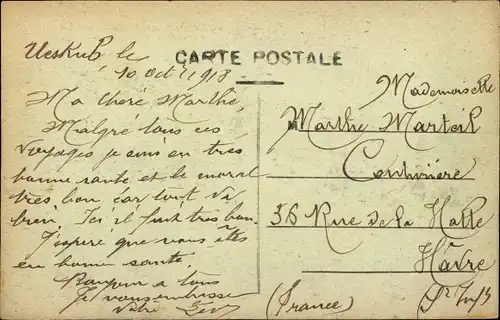 Ueskub, le
10 Oct 1918
CARTE POSTALE
Ma Chere Marthe,
Malgré tous ces
voyages je suis en très
bonne sante et le moral
très bon car tout va
bien. Ici il fait très bon.
J'espere que vous êtes
en bonne santé
Bonjour a tous
Je vous embrasse
Votre
Mademoiselle
Marthe Marteil
Couturière
56 Rue de la Halle
Hâvre
(France)